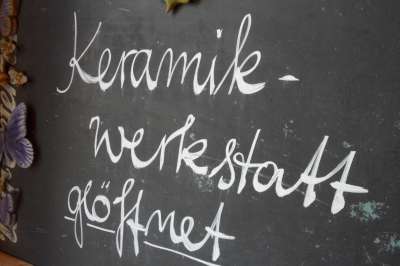 Keramik-
werkstatt
geöffnet